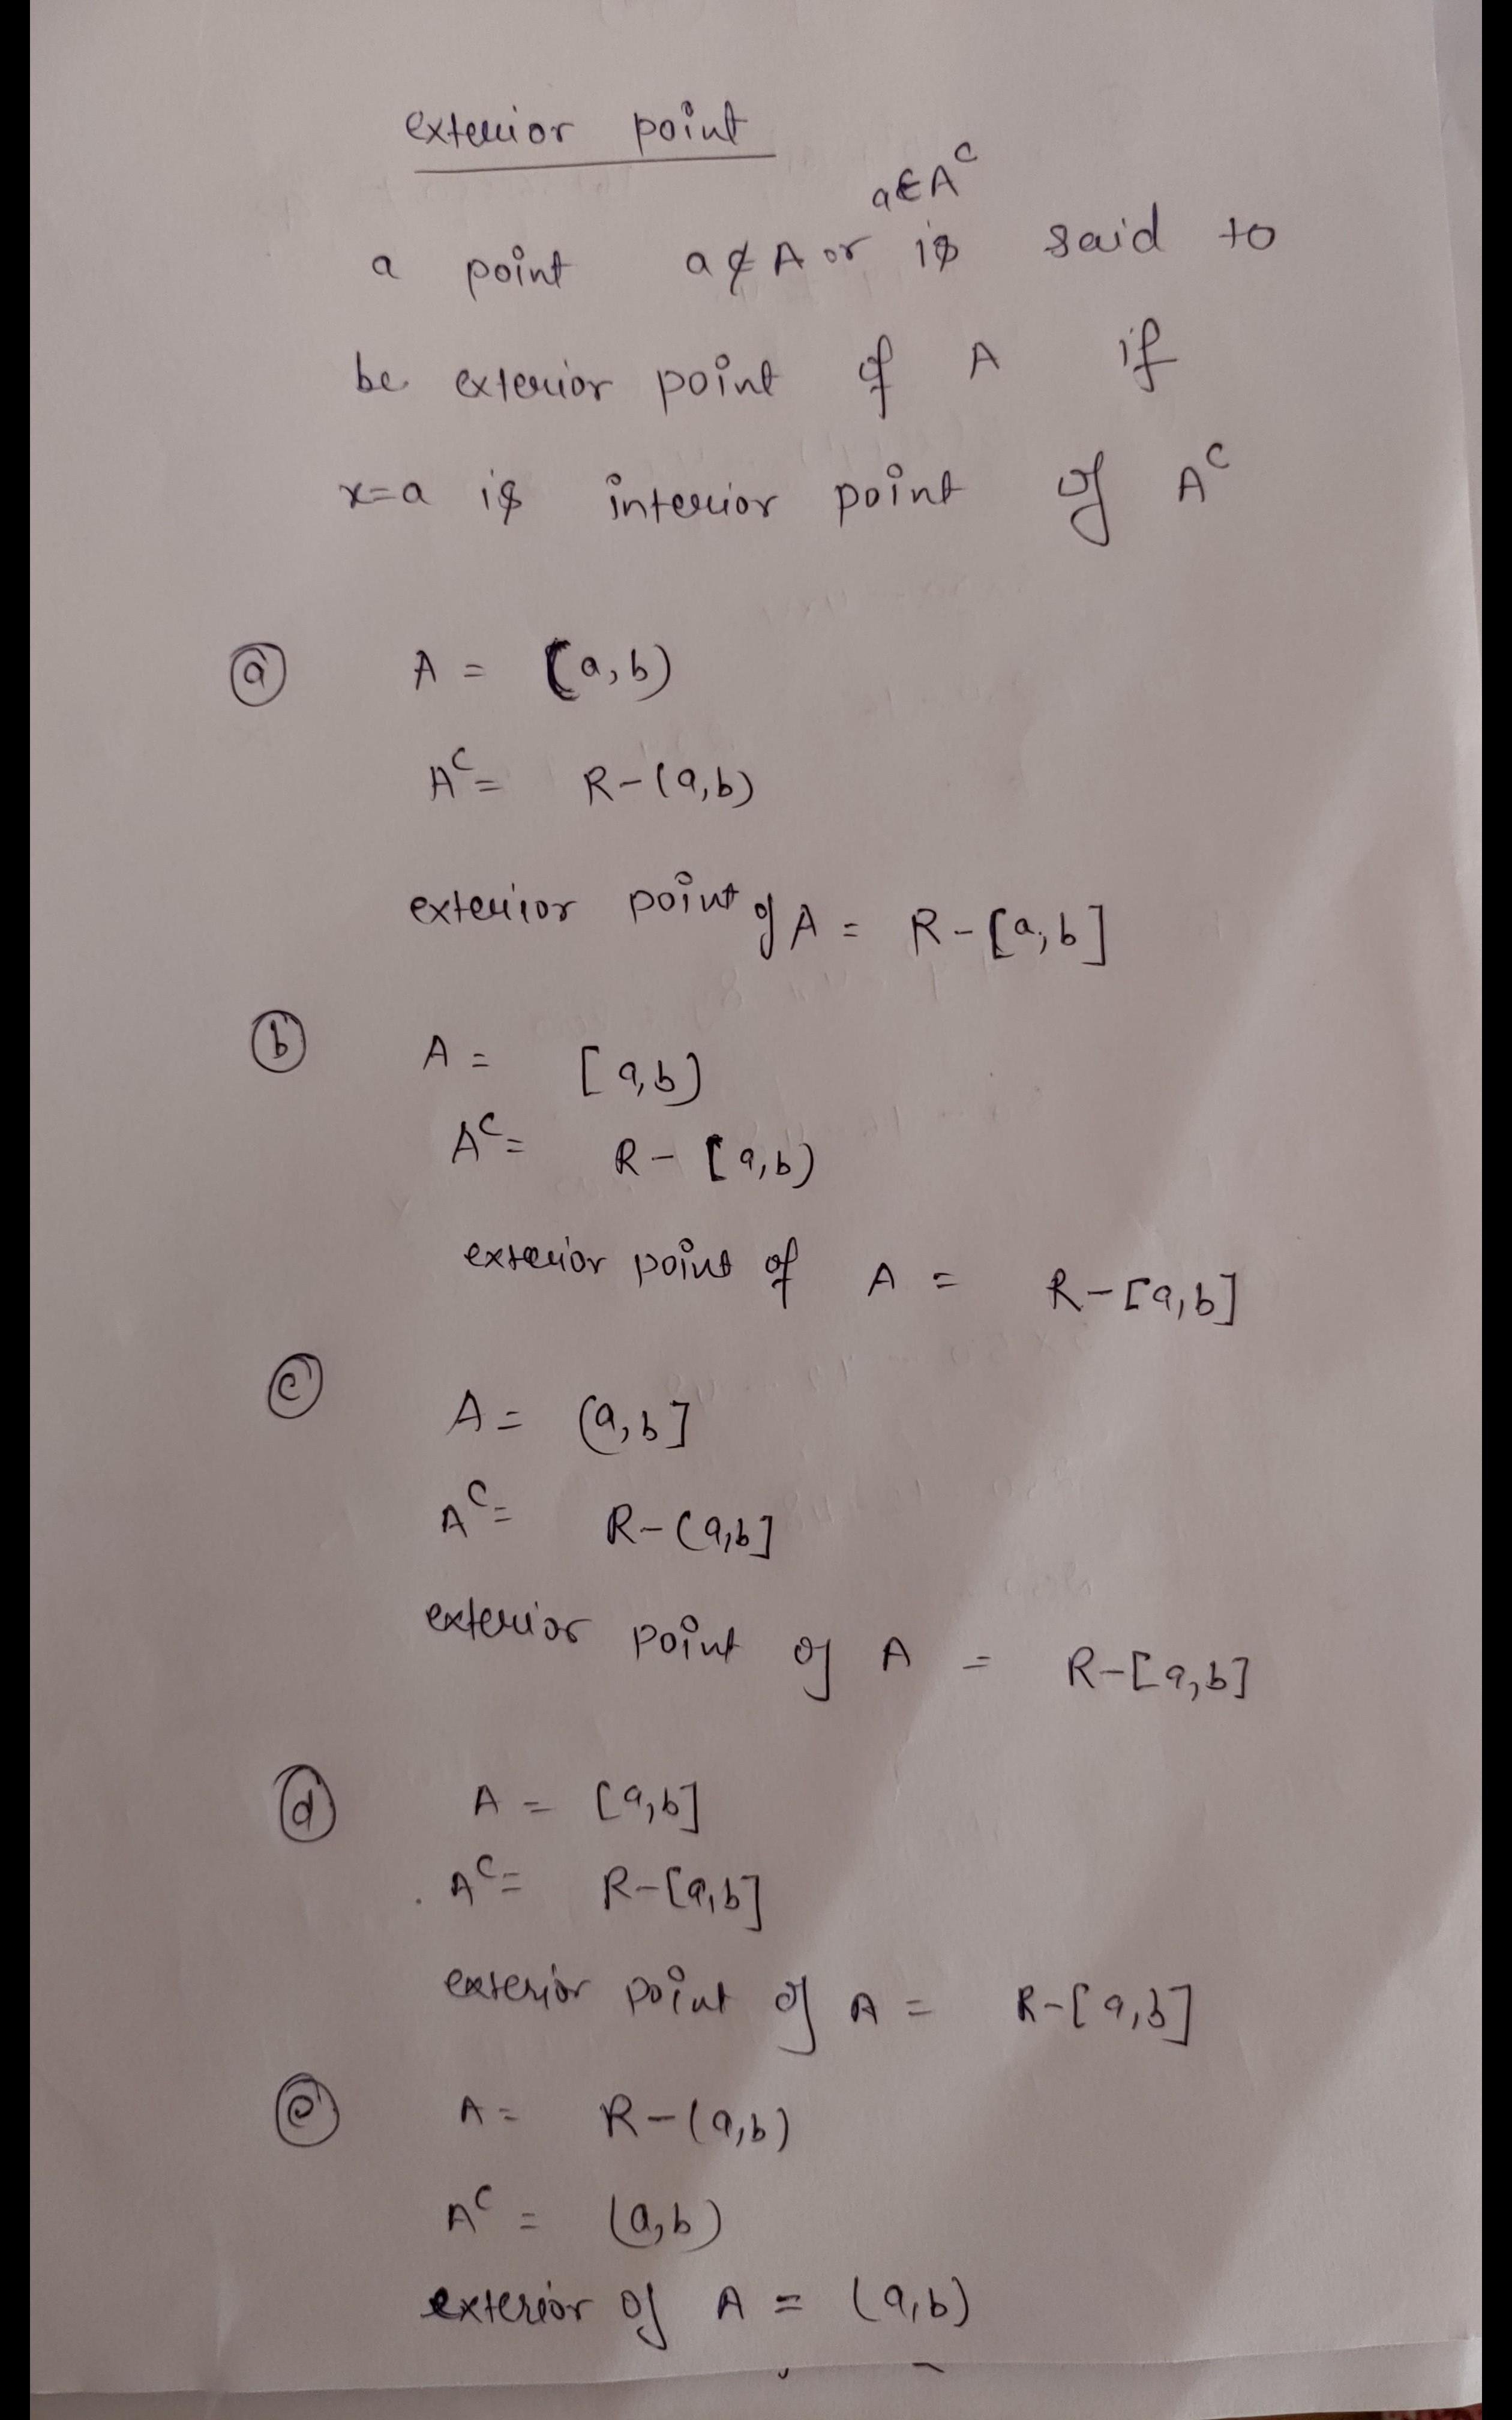 exterior point
a∈Aᶜ
a point a∉A or is said to
be exterior point of A if
x=a is interior point of Aᶜ
ⓐ A = (a,b)
Aᶜ= R-(a,b)
exterior point of A = R-[a,b]
ⓑ A = [a,b)
Aᶜ= R-[a,b)
exterior point of A = R-[a,b]
ⓒ A = (a,b]
Aᶜ= R-(a,b]
exterior point of A = R-[a,b]
ⓓ A = [a,b]
Aᶜ= R-[a,b]
exterior point of A = R-[a,b]
ⓔ A = R-(a,b)
Aᶜ = (a,b)
exterior of A = (a,b)